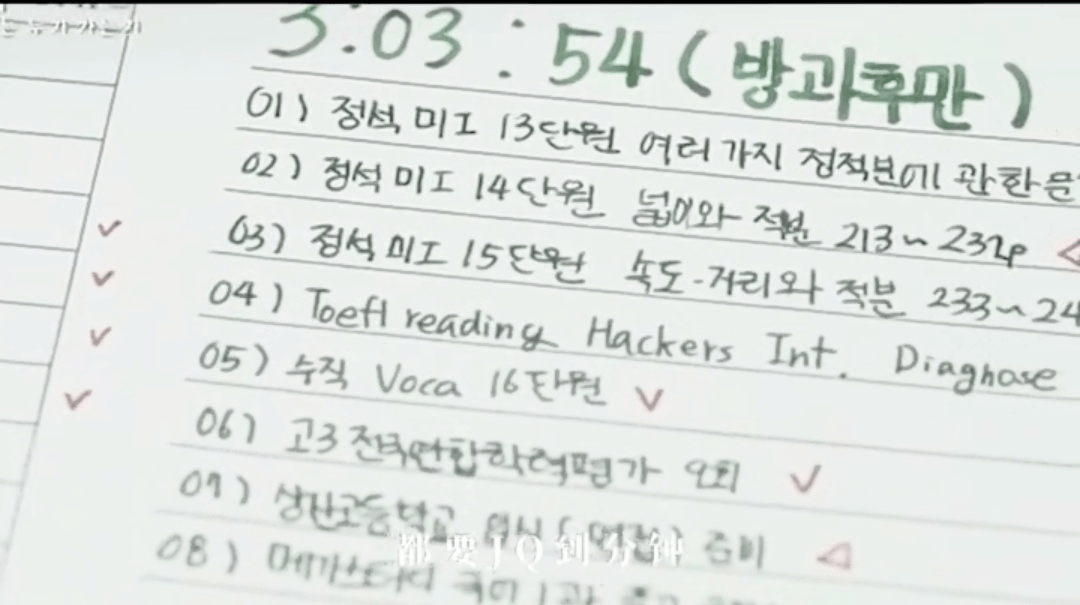 3:03:54 (방과후만)
01) 정석 미I 13단원 여러가지 정적분에 관한 문
02) 정석 미I 14단원 넓이와 적분 213~232p
03) 정석 미I 15단원 속도-거리와 적분 233~24
04) Toefl reading Hackers Int. Diagnose
05) 수직 Voca 16단원
06) 고3 전국연합학력평가 2회
고등학교 준비
08) 메가스터디 국어
都要JQ到分钟